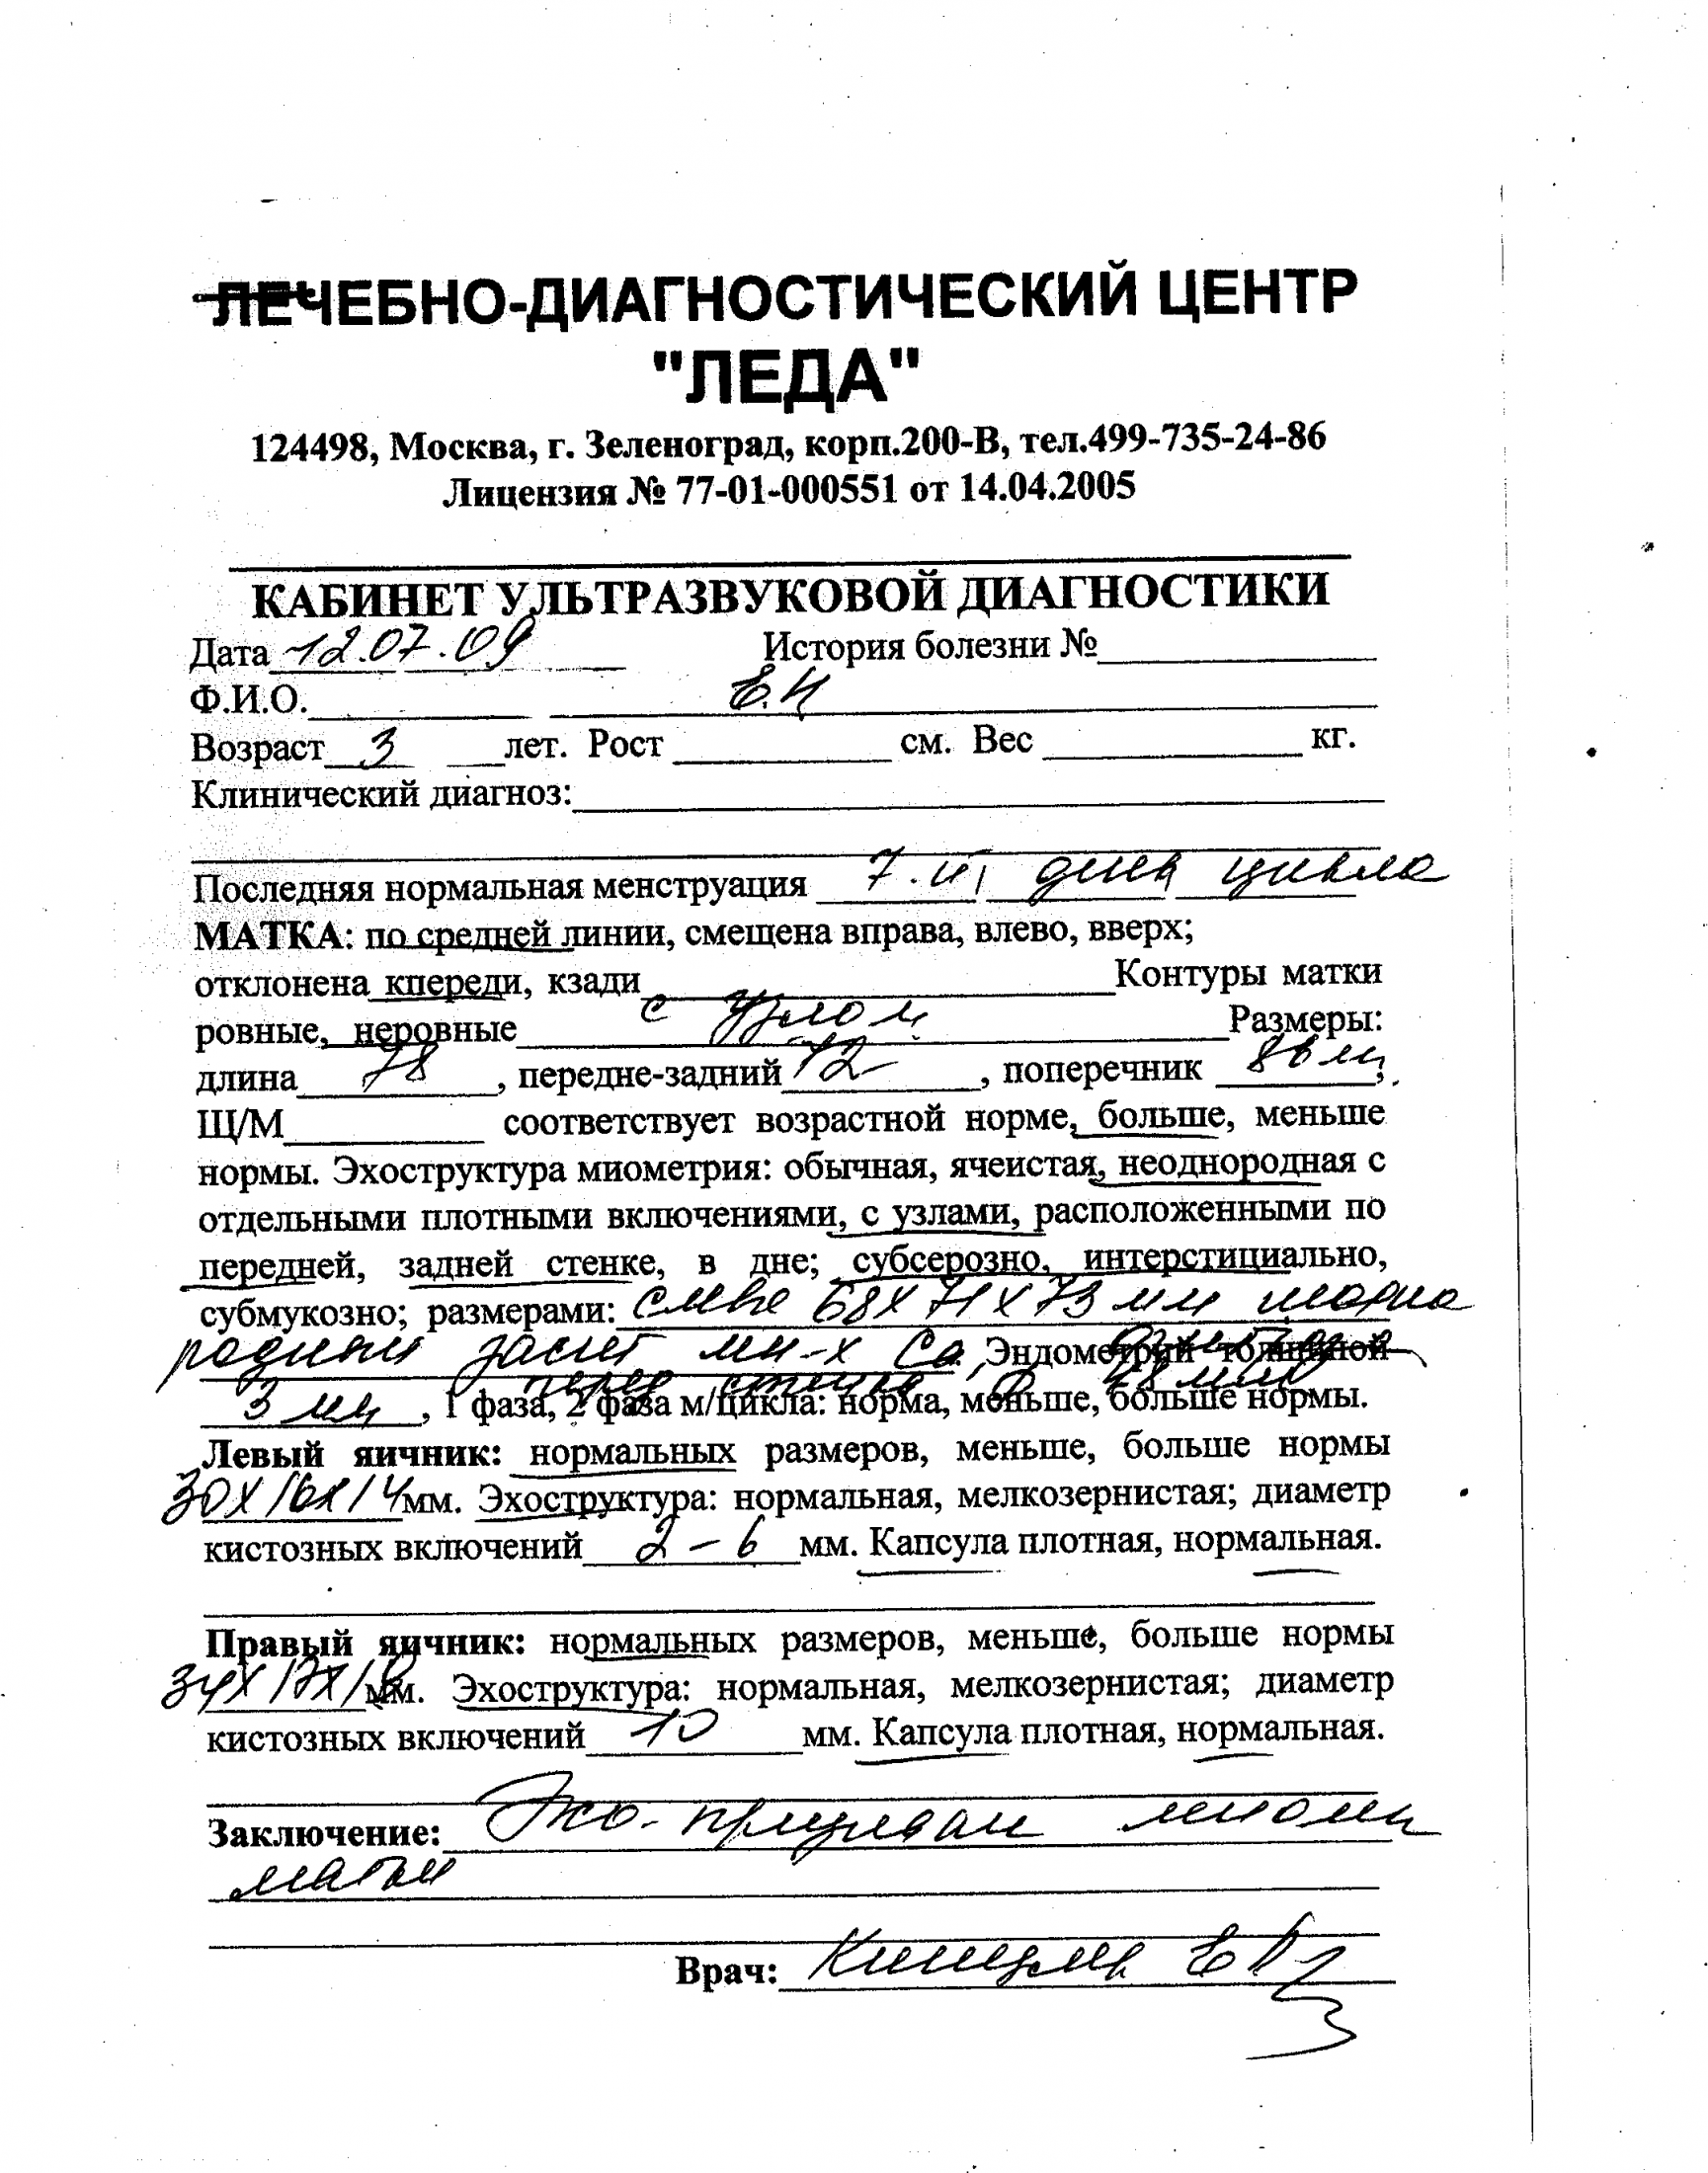 ЛЕЧЕБНО-ДИАГНОСТИЧЕСКИЙ ЦЕНТР
"ЛЕДА"
124498, Москва, г. Зеленоград, корп.200-В, тел.499-735-24-86
Лицензия № 77-01-000551 от 14.04.2005
КАБИНЕТ УЛЬТРАЗВУКОВОЙ ДИАГНОСТИКИ
Дата 12.07.09 История болезни №
Ф.И.О. Е.Н
Возраст 3 лет. Рост см. Вес кг.
Клинический диагноз:
Последняя нормальная менструация 7. день цикла
МАТКА: по средней линии, смещена вправа, влево, вверх;
отклонена кпереди, кзади Контуры матки
ровные, неровные с узлом Размеры:
длина 78, передне-задний 72, поперечник мм,
Щ/М соответствует возрастной норме, больше, меньше
нормы. Эхоструктура миометрия: обычная, ячеистая, неоднородная с
отдельными плотными включениями, с узлами, расположенными по
передней, задней стенке, в дне; субсерозно, интерстициально,
субмукозно; размерами: слева 68х71х73 мм
Эндометрий толщиной
3 мм, 1 фаза, 2 фаза м/цикла: норма, меньше, больше нормы.
Левый яичник: нормальных размеров, меньше, больше нормы
30х16х14 мм. Эхоструктура: нормальная, мелкозернистая; диаметр
кистозных включений 2-6 мм. Капсула плотная, нормальная.
Правый яичник: нормальных размеров, меньше, больше нормы
34х17х18 мм. Эхоструктура: нормальная, мелкозернистая; диаметр
кистозных включений 10 мм. Капсула плотная, нормальная.
Заключение: Эхо-признаки миомы
матки
Врач: